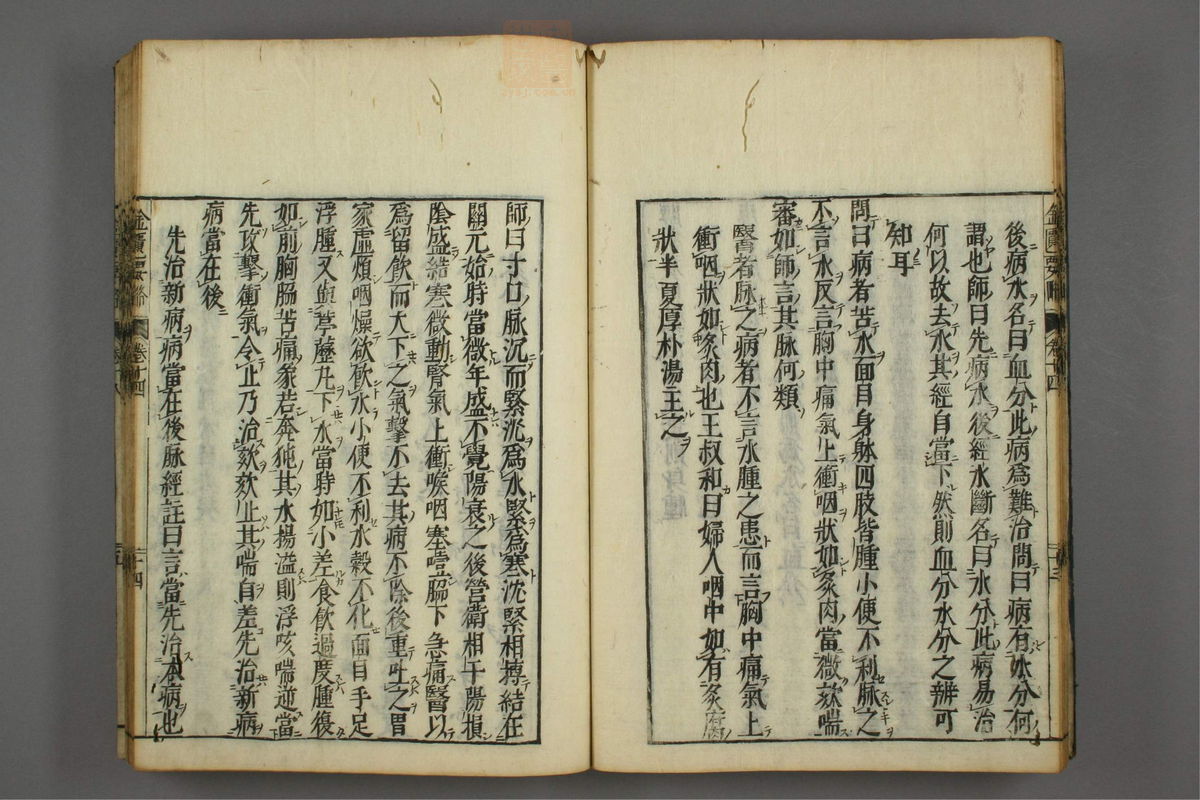 後病水名曰血分此病爲難治問曰病有水分何
謂也師曰先病水後經水斷名曰水分此病易治
何以故去水其經自當下然則血分水分之辨可
知耳
問曰病者苦水面目身躰四肢皆腫小便不利脉之
不言水反言胸中痛氣上衝咽狀如炙肉當微欬喘
審如師言其脉何類
醫者脉之病者不言水腫之患而言胸中痛氣上
衝咽狀如炙肉也王叔和曰婦人咽中如有炙腐
狀半夏厚朴湯主之
師曰寸口脉沉而緊沉爲水緊爲寒沈緊相摶結在
關元始時當微年盛不覺陽衰之後營衛相干陽損
陰盛結寒微動腎氣上衝喉咽塞噎脇下急痛醫以
爲留飲而大下之氣擊不去其病不除後重吐之胃
家虛煩咽燥欲飲水小便不利水穀不化面目手足
浮腫又與葶藶丸下水當時如小差食飲過度腫復
如前胸脇苦痛象若奔㹠其水揚溢則浮咳喘逆當
先攻擊衝氣令止乃治欬欬止其喘自差先治新病
病當在後
先治新病病當在後脉經註曰言當先治本病也
金匱要略 卷十四
二十四